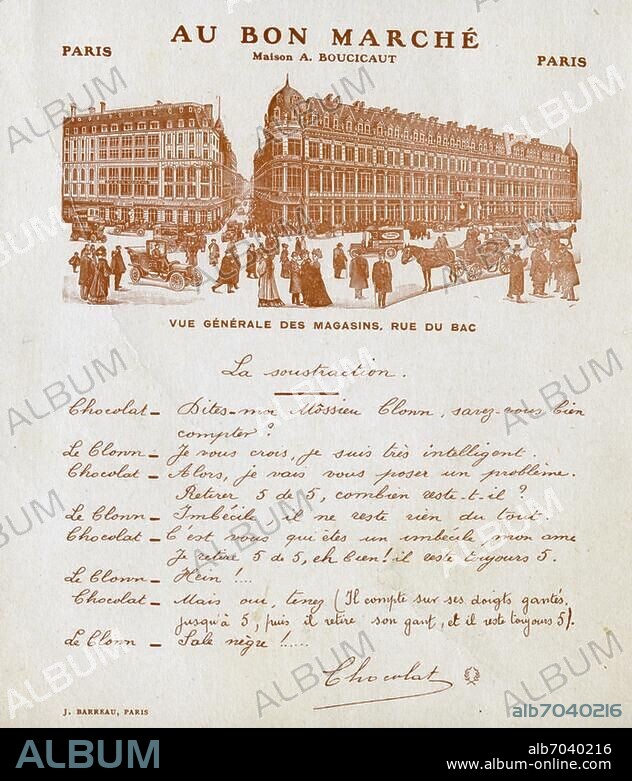 AU BON MARCHÉ
PARIS
Maison A. BOUCICAUT
PARIS
VUE GÉNÉRALE DES MAGASINS, RUE DU BAC
La soustraction.
Chocolat – Dites-moi Môssieu Clonn, savez-vous bien
compter ?
Le Clonn – Je vous crois, je suis très intelligent.
Chocolat – Alors, je vais vous poser un problème.
Retirer 5 de 5, combien reste-t-il ?
Le Clonn – Imbécile, il ne reste rien du tout.
Chocolat – C'est vous qui êtes un imbécile, mon ami
Je retire 5 de 5, eh bien ! il reste toujours 5.
Le Clonn – Hein !...
Chocolat – Mais oui, tenez (Il compte sur ses doigts gantés,
jusqu'à 5, puis il retire son gant, et il reste toujours 5).
Le Clonn – Sale nègre !.....
Chocolat
J. BARREAU, PARIS
alb7040216
ALBUM
alb7040216
www.album-online.com